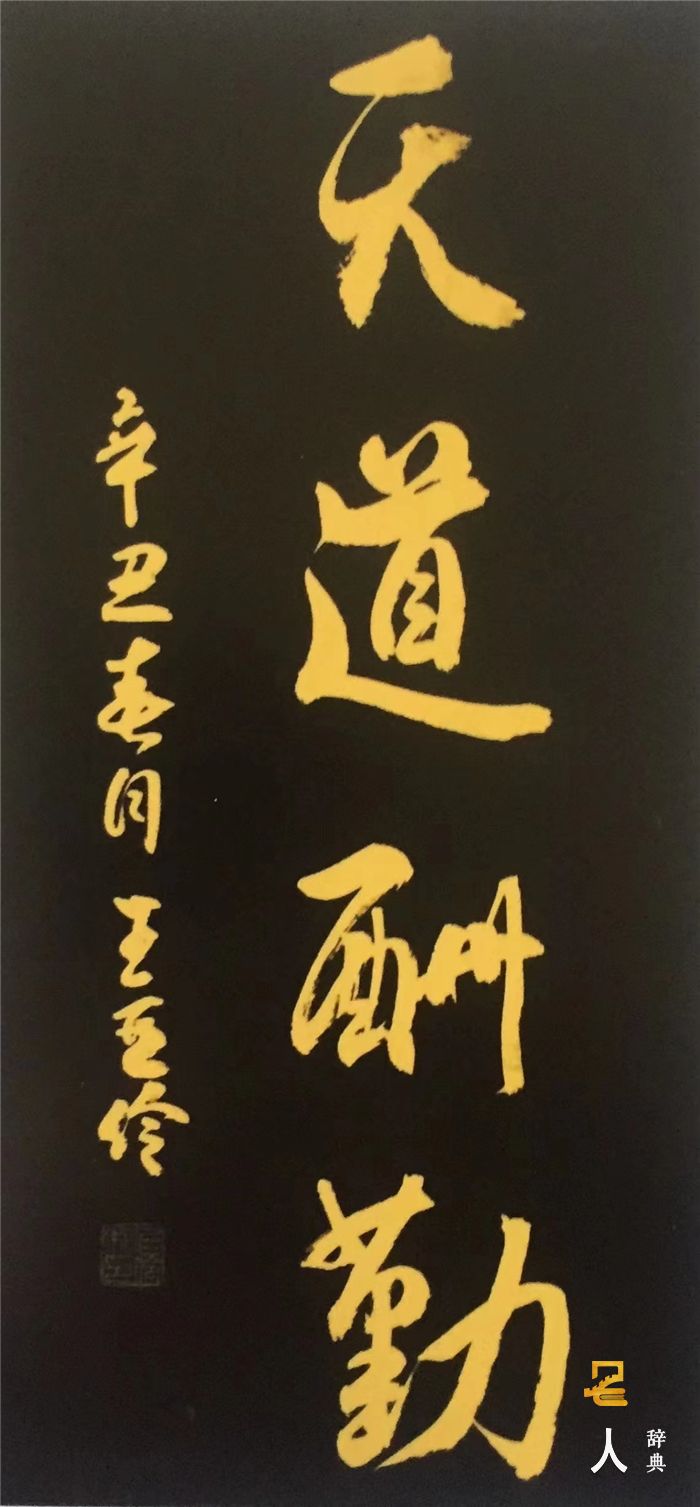 天道酬勤
辛丑春月 王亚伶
名人
辞典